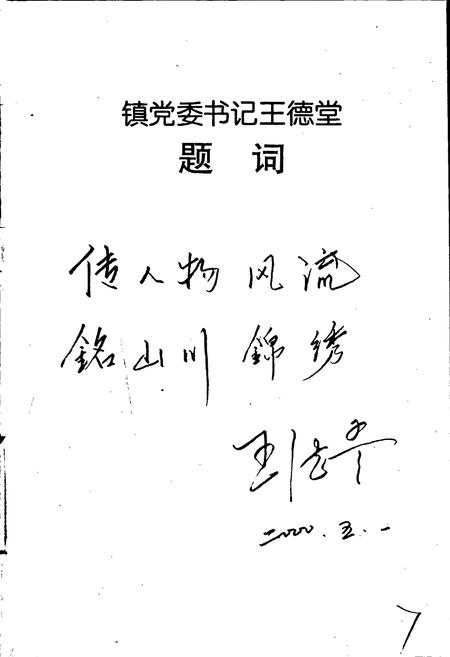 镇党委书记王德堂
题 词
传人物风流
銘山川錦绣
二〇〇〇.五.一